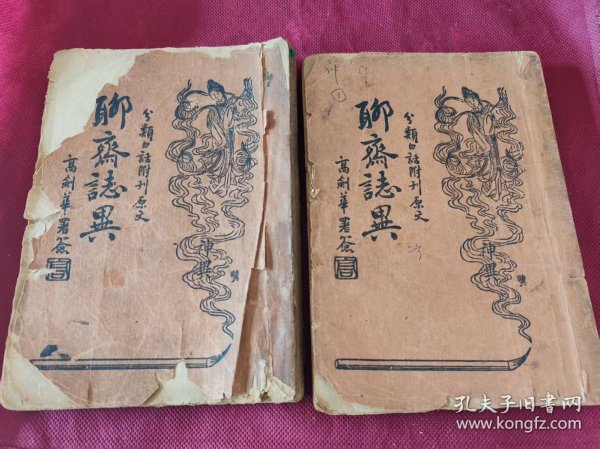 聊齋誌異
分類白話附刊原文
高劍華署簽
神異
聊齋誌異
分類白話附刊原文
高劍華署簽
神異
孔夫子旧书网
www.kongfz.com